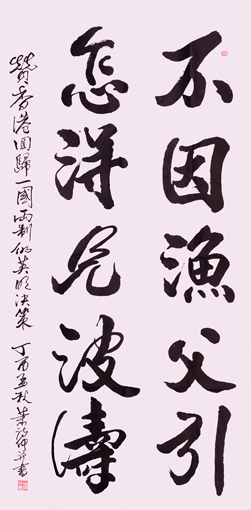 不因漁父引
怎得見波濤
贊香港回歸一國兩制的英明決策 丁酉孟秋